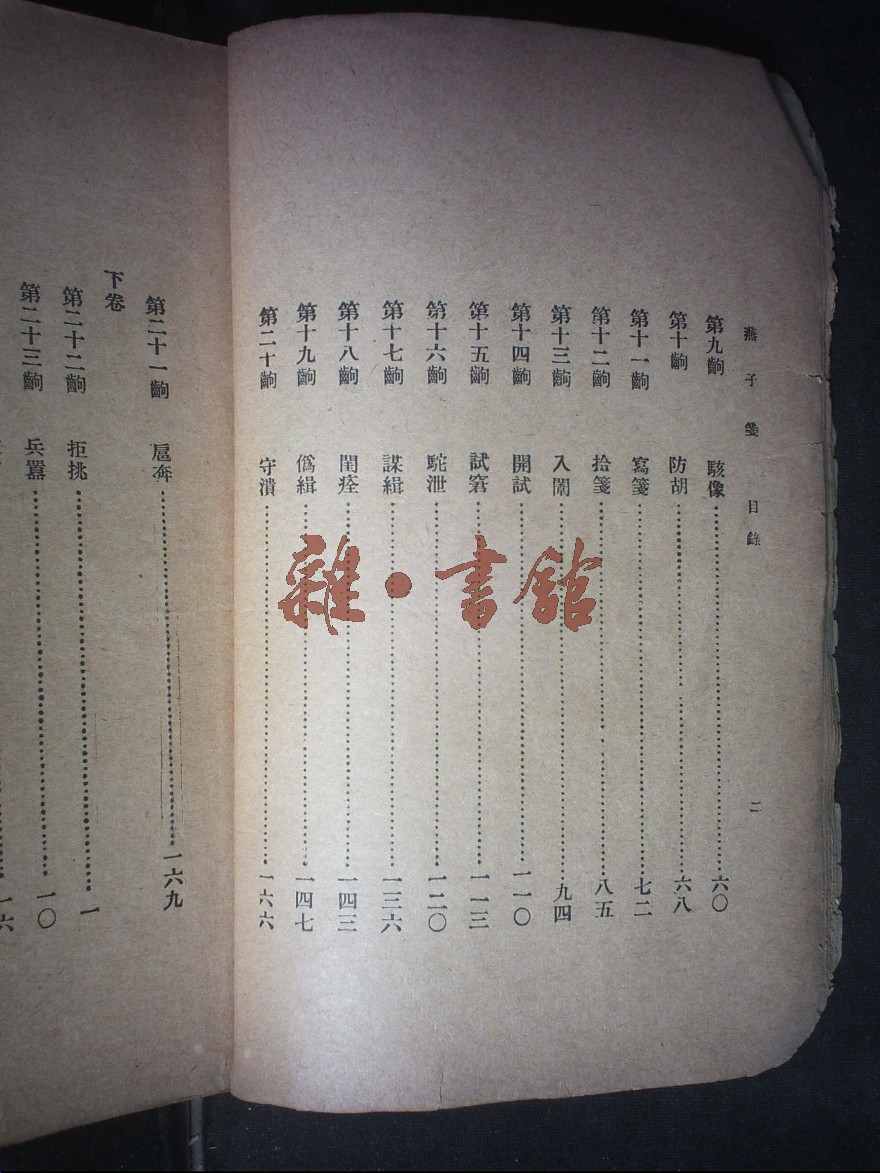 燕子箋 目錄
二
第九齣 駭像 六〇
第十齣 防胡 六八
第十一齣 寫箋 七二
第十二齣 拾箋 八五
第十三齣 入闈 九四
第十四齣 開試 一一〇
第十五齣 試窘 一一三
第十六齣 駝泄 一二〇
第十七齣 謀緝 一三六
第十八齣 閨痊 一四三
第十九齣 偽緝 一四七
第二十齣 守潰 一六六
第二十一齣 扈奔 一六九
下卷
第二十二齣 拒挑 一
第二十三齣 兵囂 一〇
一六
雜·書館